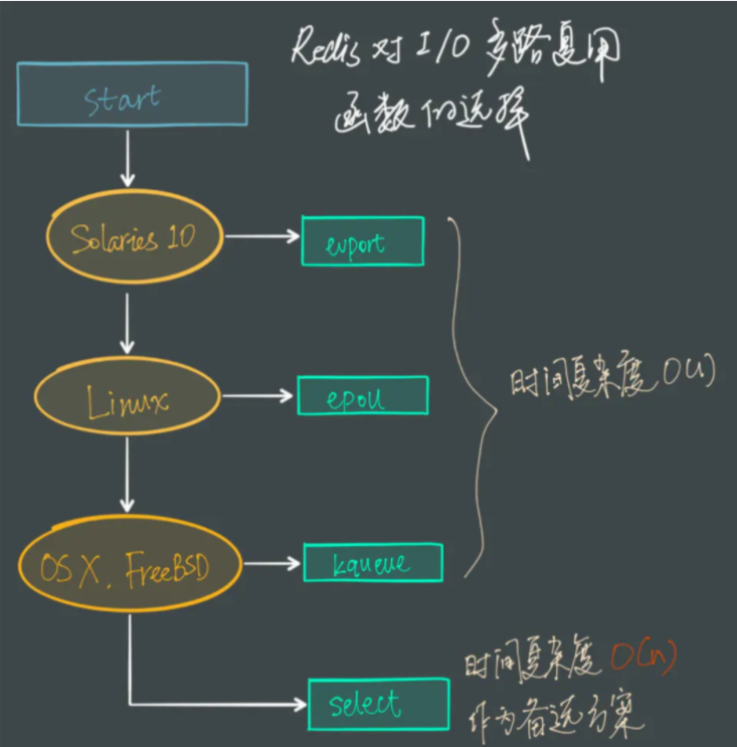 Redis对I/O多路复用
函数的选择
Start
Solaries 10
evport
Linux
epoll
时间复杂度O(1)
OS X, FreeBSD
kqueue
时间复杂度O(n)
select
作为备选方案